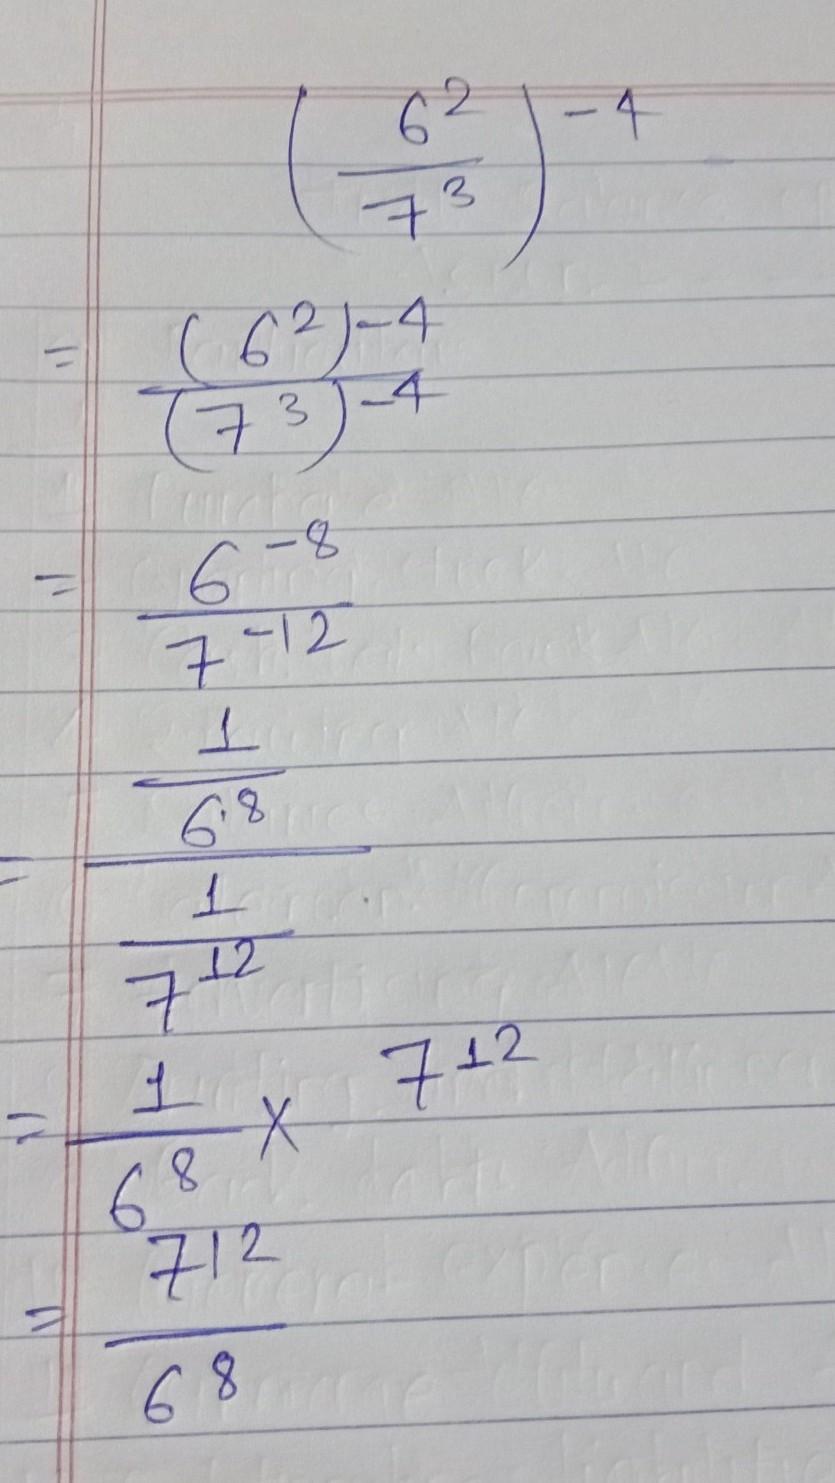 (6²/7³)⁻⁴
= (6²)⁻⁴/(7³)⁻⁴
= 6⁻⁸/7⁻¹²
= (1/6⁸)/(1/7¹²)
= 1/6⁸ × 7¹²
= 7¹²/6⁸